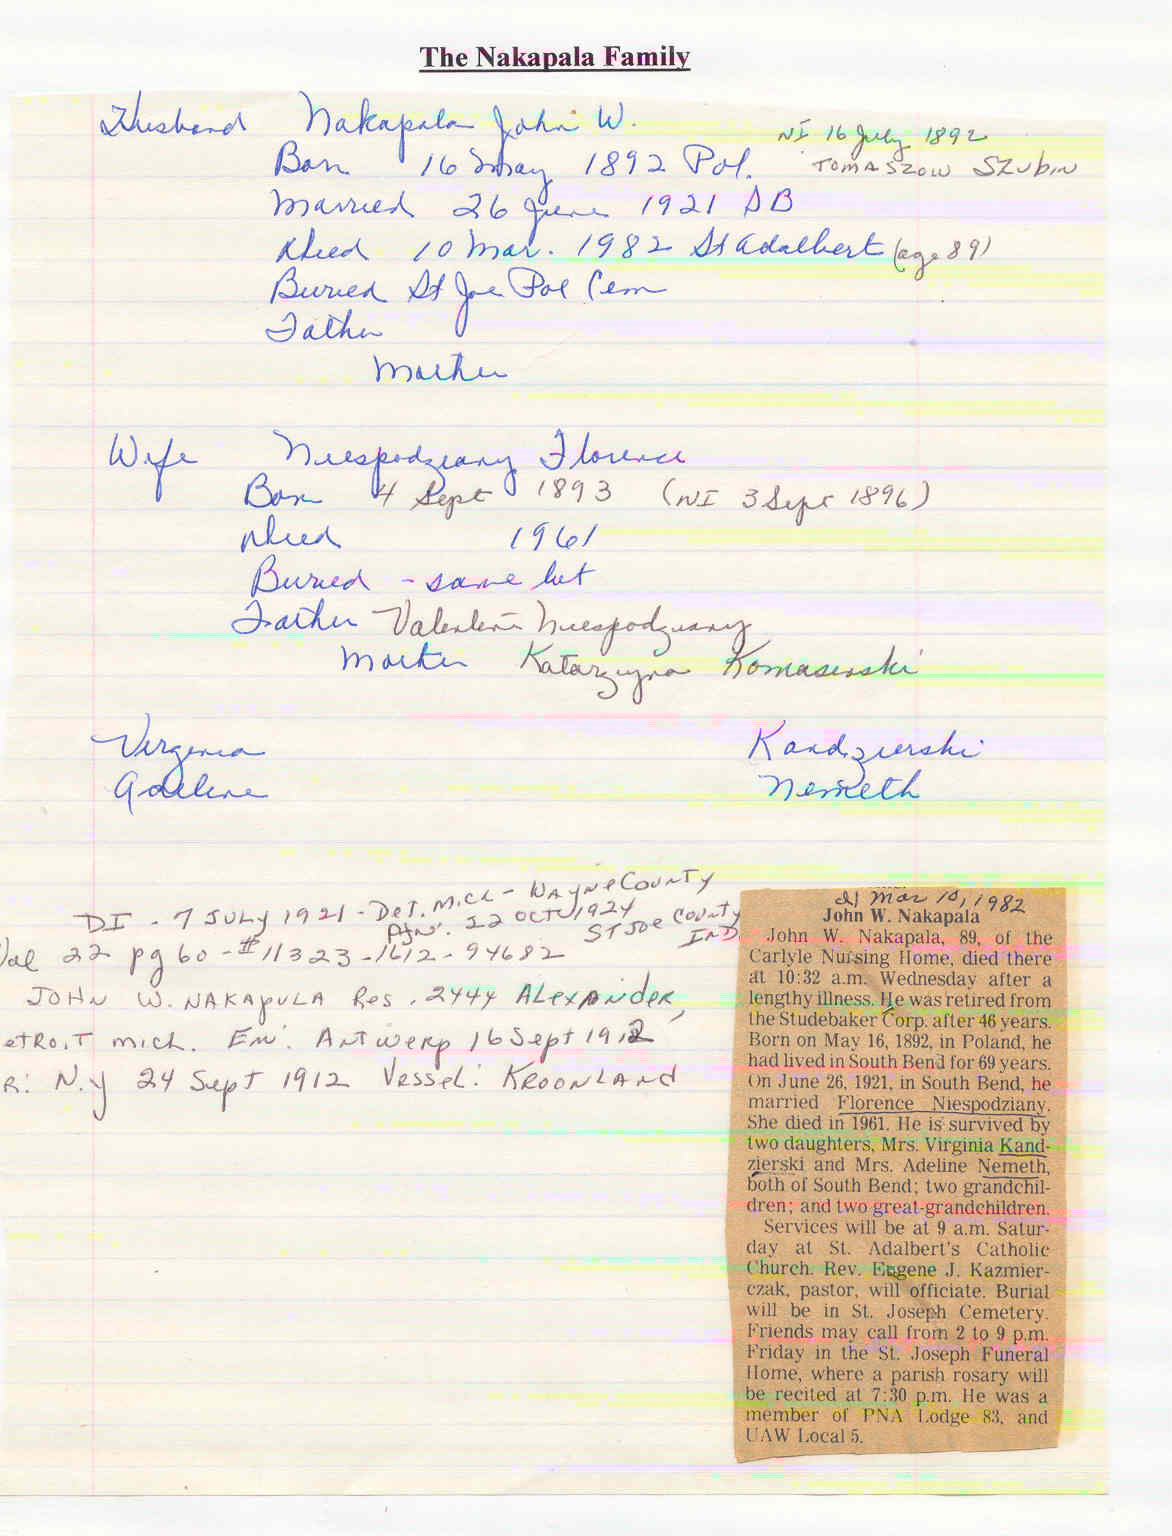 The Nakapala Family
Husband Nakapala John W.
NI 16 July 1892
Born 16 May 1892 Pol. TOMASZOW SZUBIN
Married 26 June 1921 SB
Died 10 Mar. 1982 St Adalbert (age 89)
Buried St Joe Pol Cem
Father
Mother
Wife Niespodziany Florence
Born 4 Sept 1893 (NI 3 Sept 1896)
Died 1961
Buried - same lot
Father Valentine Niespodziany
Mother Katarzyna Komasinski
Virginia Kandzierski
Adeline Nemeth
DI - 7 JULY 1921 - Det. Mich - WAYNE COUNTY
22 OCT 1924
ST JOE COUNTY
IND.
Vol 22 pg 60 - #11323 - 1612 - 94682
JOHN W. NAKAPULA Res. 2444 ALEXANDER,
ETROIT mich. Em: ANTWERP 16 Sept 1912
R: N.Y 24 Sept 1912 Vessel: KROONLAND
Mar 10, 1982
John W. Nakapala
John W. Nakapala, 89, of the
Carlyle Nursing Home, died there
at 10:32 a.m. Wednesday after a
lengthy illness. He was retired from
the Studebaker Corp. after 46 years.
Born on May 16, 1892, in Poland, he
had lived in South Bend for 69 years.
On June 26, 1921, in South Bend, he
married Florence Niespodziany.
She died in 1961. He is survived by
two daughters, Mrs. Virginia Kand-
zierski and Mrs. Adeline Nemeth,
both of South Bend; two grandchil-
dren; and two great-grandchildren.
Services will be at 9 a.m. Satur-
day at St. Adalbert's Catholic
Church. Rev. Eugene J. Kazmier-
czak, pastor, will officiate. Burial
will be in St. Joseph Cemetery.
Friends may call from 2 to 9 p.m.
Friday in the St. Joseph Funeral
Home, where a parish rosary will
be recited at 7:30 p.m. He was a
member of PNA Lodge 83, and
UAW Local 5.